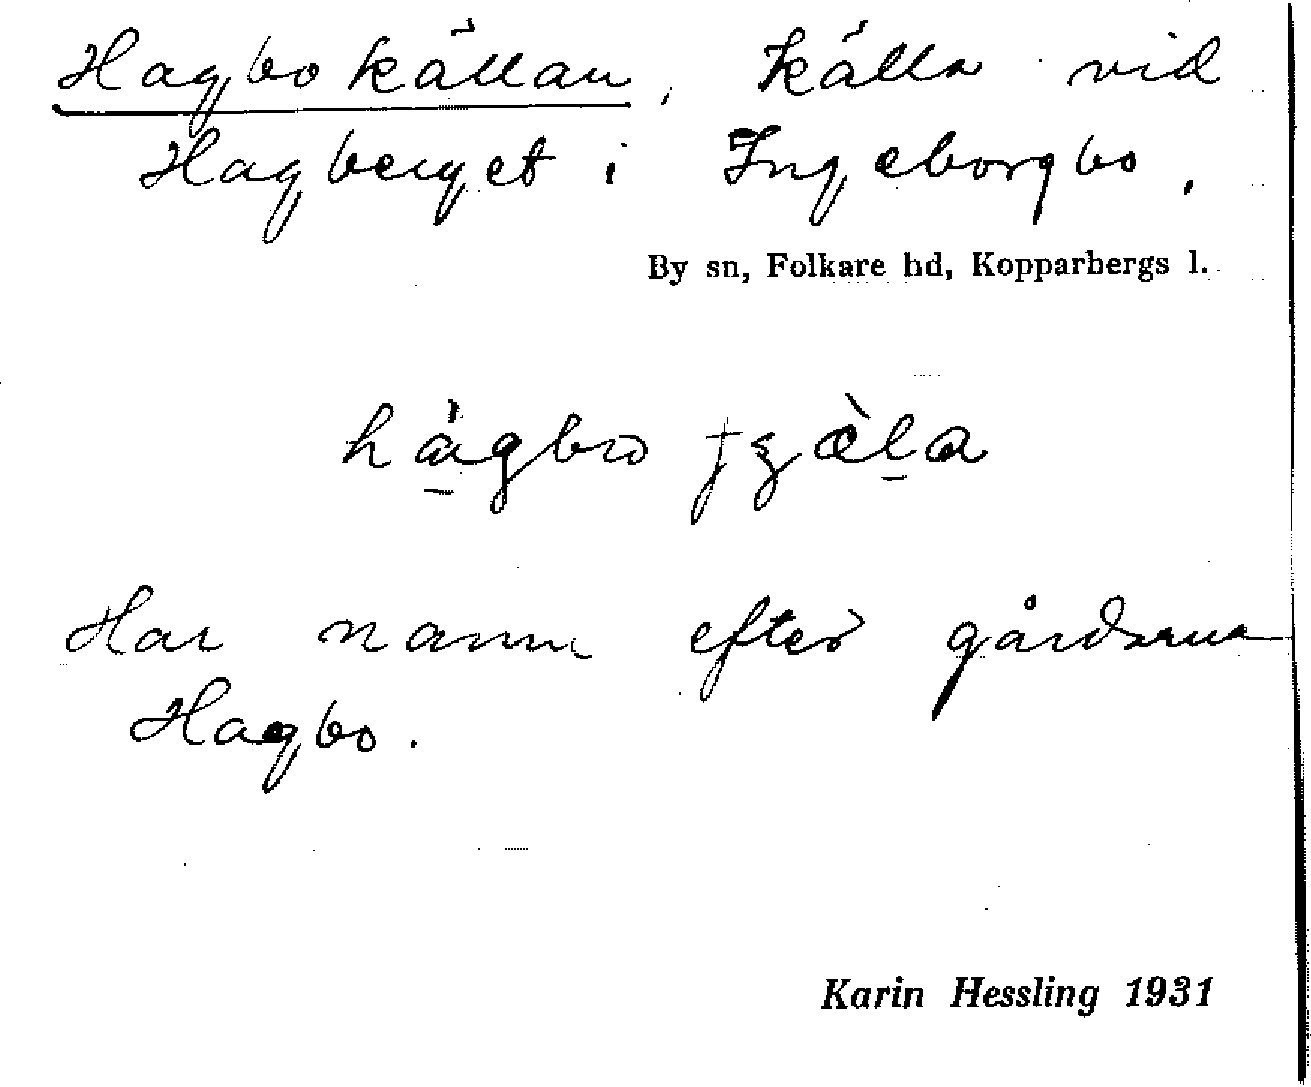 Hagbokällan, källa vid
Hagberget i Ingeborgbo,
By sn, Folkare hd, Kopparbergs l.
hágbo
Har namn efter gårdarna
Hagbo.
Karin Hessling 1931